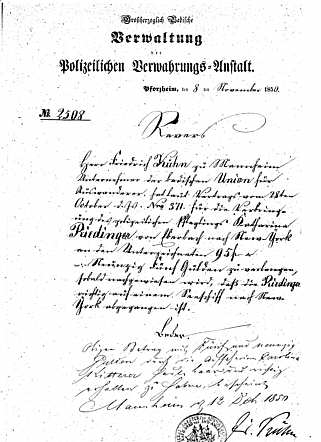 Großherzoglich Badische
Verwaltung
der
Polizeilichen Verwahrungs-Anstalt.
Pforzheim, den 8 ten November 1850.
№ 2508
Revers
Herr Friedrich Kühn zu Mannheim
Unternehmer der badischen Union für
Auswanderer hat laut Vertrags vom 18ten
October d. J. No 571 für die Verbringung
des polizeilichen Pfleglings Katharina
Rüdinger von Forbach nach New York
an den Unterzeichneten 95 f
Neunzig Fünf Gulden zu verlangen,
sobald nachgewiesen wird, daß die Rüdinger
richtig auf einem Seeschiff nach New
York abgegangen ist.
Obigen Betrag mit Fünf und neunzig
Gulden
erhalten zu haben bescheint
Mannheim 12 1850
Fr. Kühn